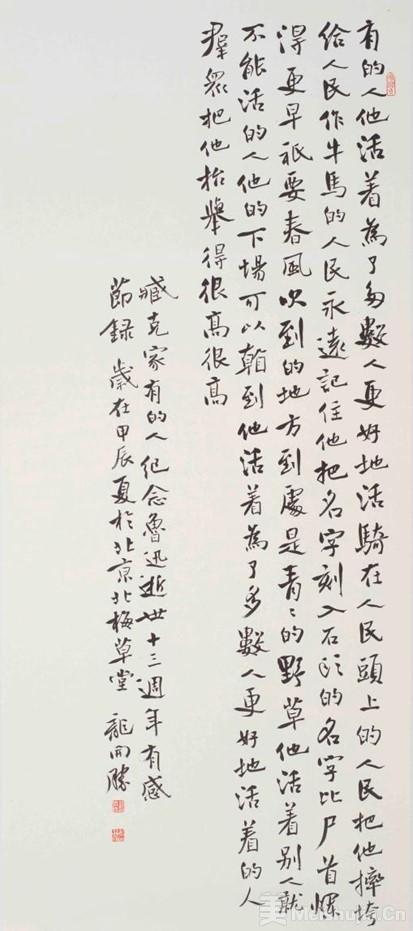 有的人他活着為了多數人更好地活騎在人民頭上的人民把他摔垮
給人民作牛馬的人民永遠記住他把名字刻入石頭的名字比尸首爛
得更早祇要春風吹到的地方到處是青々的野草他活着別人就
不能活的人他的下場可以看到他活着為了多數人更好地活着的人
羣眾把他抬舉得很高很高
臧克家有的人紀念魯迅逝世十三週年有感
節錄 歲在甲辰夏於北京北梅草堂 龍開勝